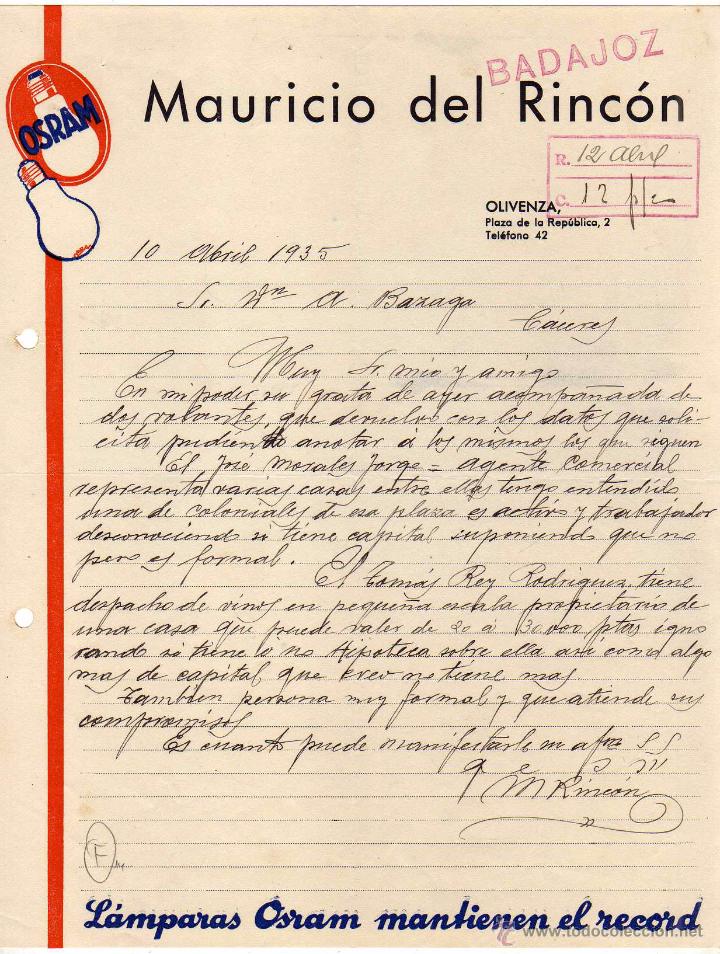 BADAJOZ
Mauricio del Rincón
OSRAM
R. 12 abril
C. 12
OLIVENZA,
Plaza de la República, 2
Teléfono 42
10 Abril 1935
Sr. Dn A. Bazaga
Cáceres
Muy Sr. mio y amigo
En mi poder su grata de ayer acompañada de
dos volantes, que devuelvo con los datos que soli-
cita pudiendo anotar a los mismos los que siguen
El José Morales Jorge = agente comercial
representa varias casas entre ellas tengo entendido
una de coloniales de esa plaza es activo y trabajador
desconociendo si tiene capital suponiendo que no
pero es formal.
El Tomás Rey Rodriguez, tiene
despacho de vinos en pequeña escala propietario de
una casa que puede valer de 20 a 30.000 ptas igno
rando si tiene o no Hipoteca sobre ella asi como algo
mas de capital que creo no tiene mas.
Tambien persona muy formal y que atiende sus
compromisos
Es cuanto puede manifestarle su afmo SS
q e s m
M Rincón
F
Lámparas Osram mantienen el record
www.todocoleccion.net